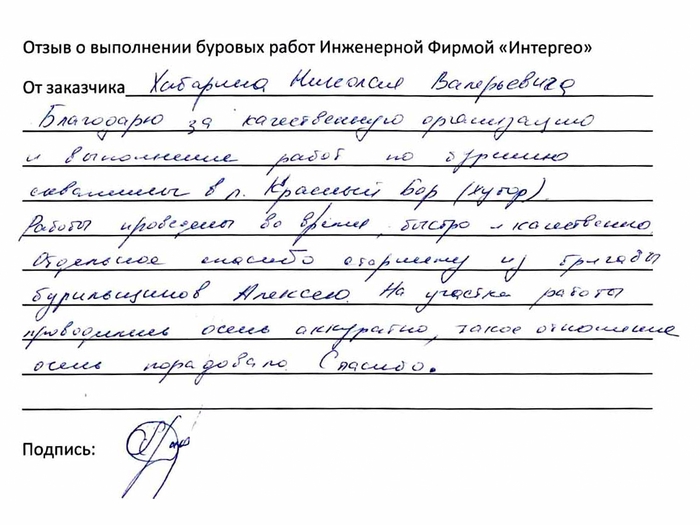 Отзыв о выполнении буровых работ Инженерной Фирмой «Интергео»
От заказчика Хабарина Николая Валерьевича
Благодарю за качественную организацию
и выполнение работ по бурению
скважины в п. Красный Бор (хутор).
Работы проведены во время, быстро и качественно
Отдельное спасибо старшему из бригады
бурильщиков Алексею. На участке работы
проводились очень аккуратно, такое отношение
очень порадовало. Спасибо.
Подпись: